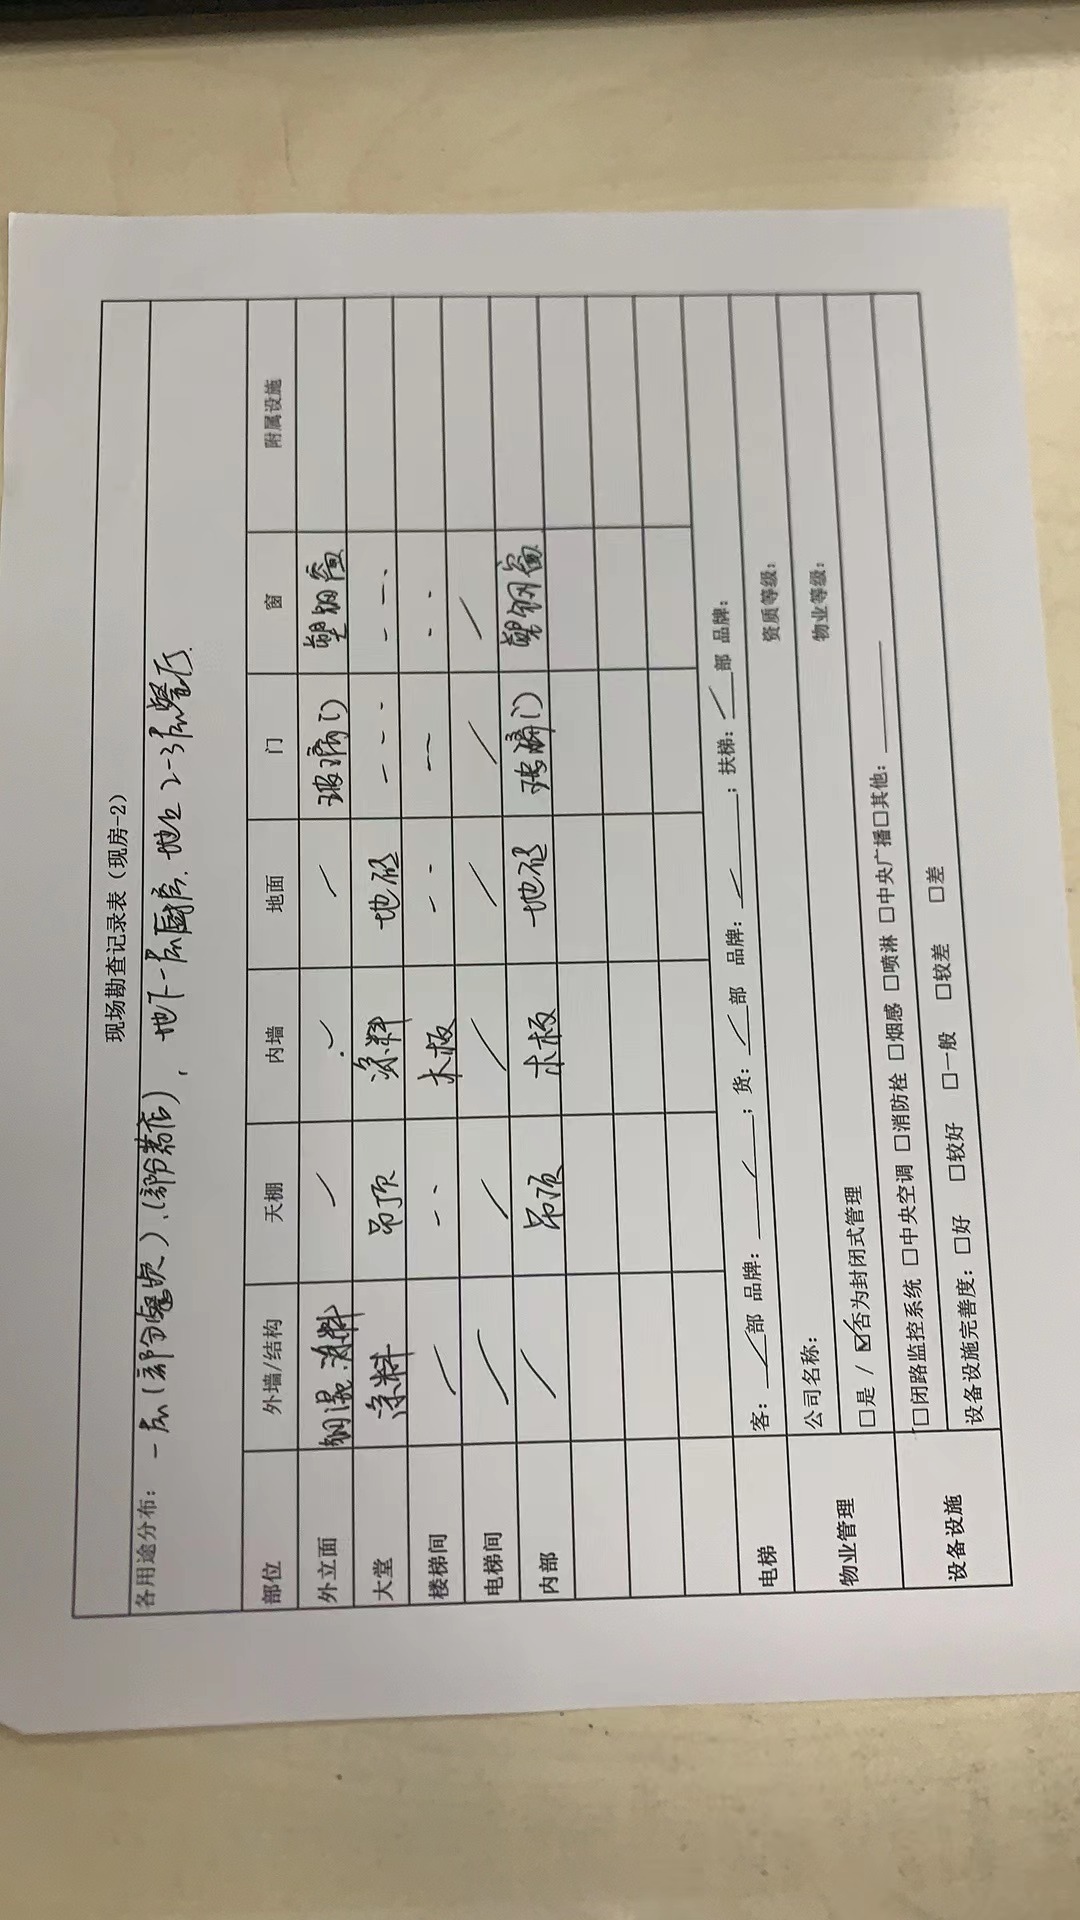 现场勘查记录表（现房-2）
各用途分布： 一层(部分餐饮)、(部分药店)、地下一层厨房、地上2-3层餐厅.
部位 外墙/结构 天棚 内墙 地面 门 窗 附属设施
外立面 钢混.涂料 / / 玻璃门 塑钢窗
大堂 涂料 吊顶 涂料 地砖 --- ---
楼梯间 / -- 木板 -- -- --
电梯间 / / / / / /
内部 / 吊顶 木板 地砖 玻璃门 塑钢窗
电梯 客：/部 品牌：/；货：/部 品牌：/；扶梯：/部 品牌：
物业管理 公司名称： 资质等级：
□是 / ☑否为封闭式管理 物业等级：
设备设施 □闭路监控系统 □中央空调 □消防栓 □烟感 □喷淋 □中央广播□其他：
设备设施完善度：□好 □较好 □一般 □较差 □差